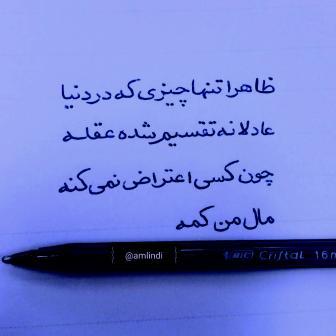 ظاهرا تنها چیزی که در دنیا
عادلانه تقسیم شده عقله
چون کسی اعتراض نمی کنه
مال من کمه
@amlindi
BIC Cristal 16m